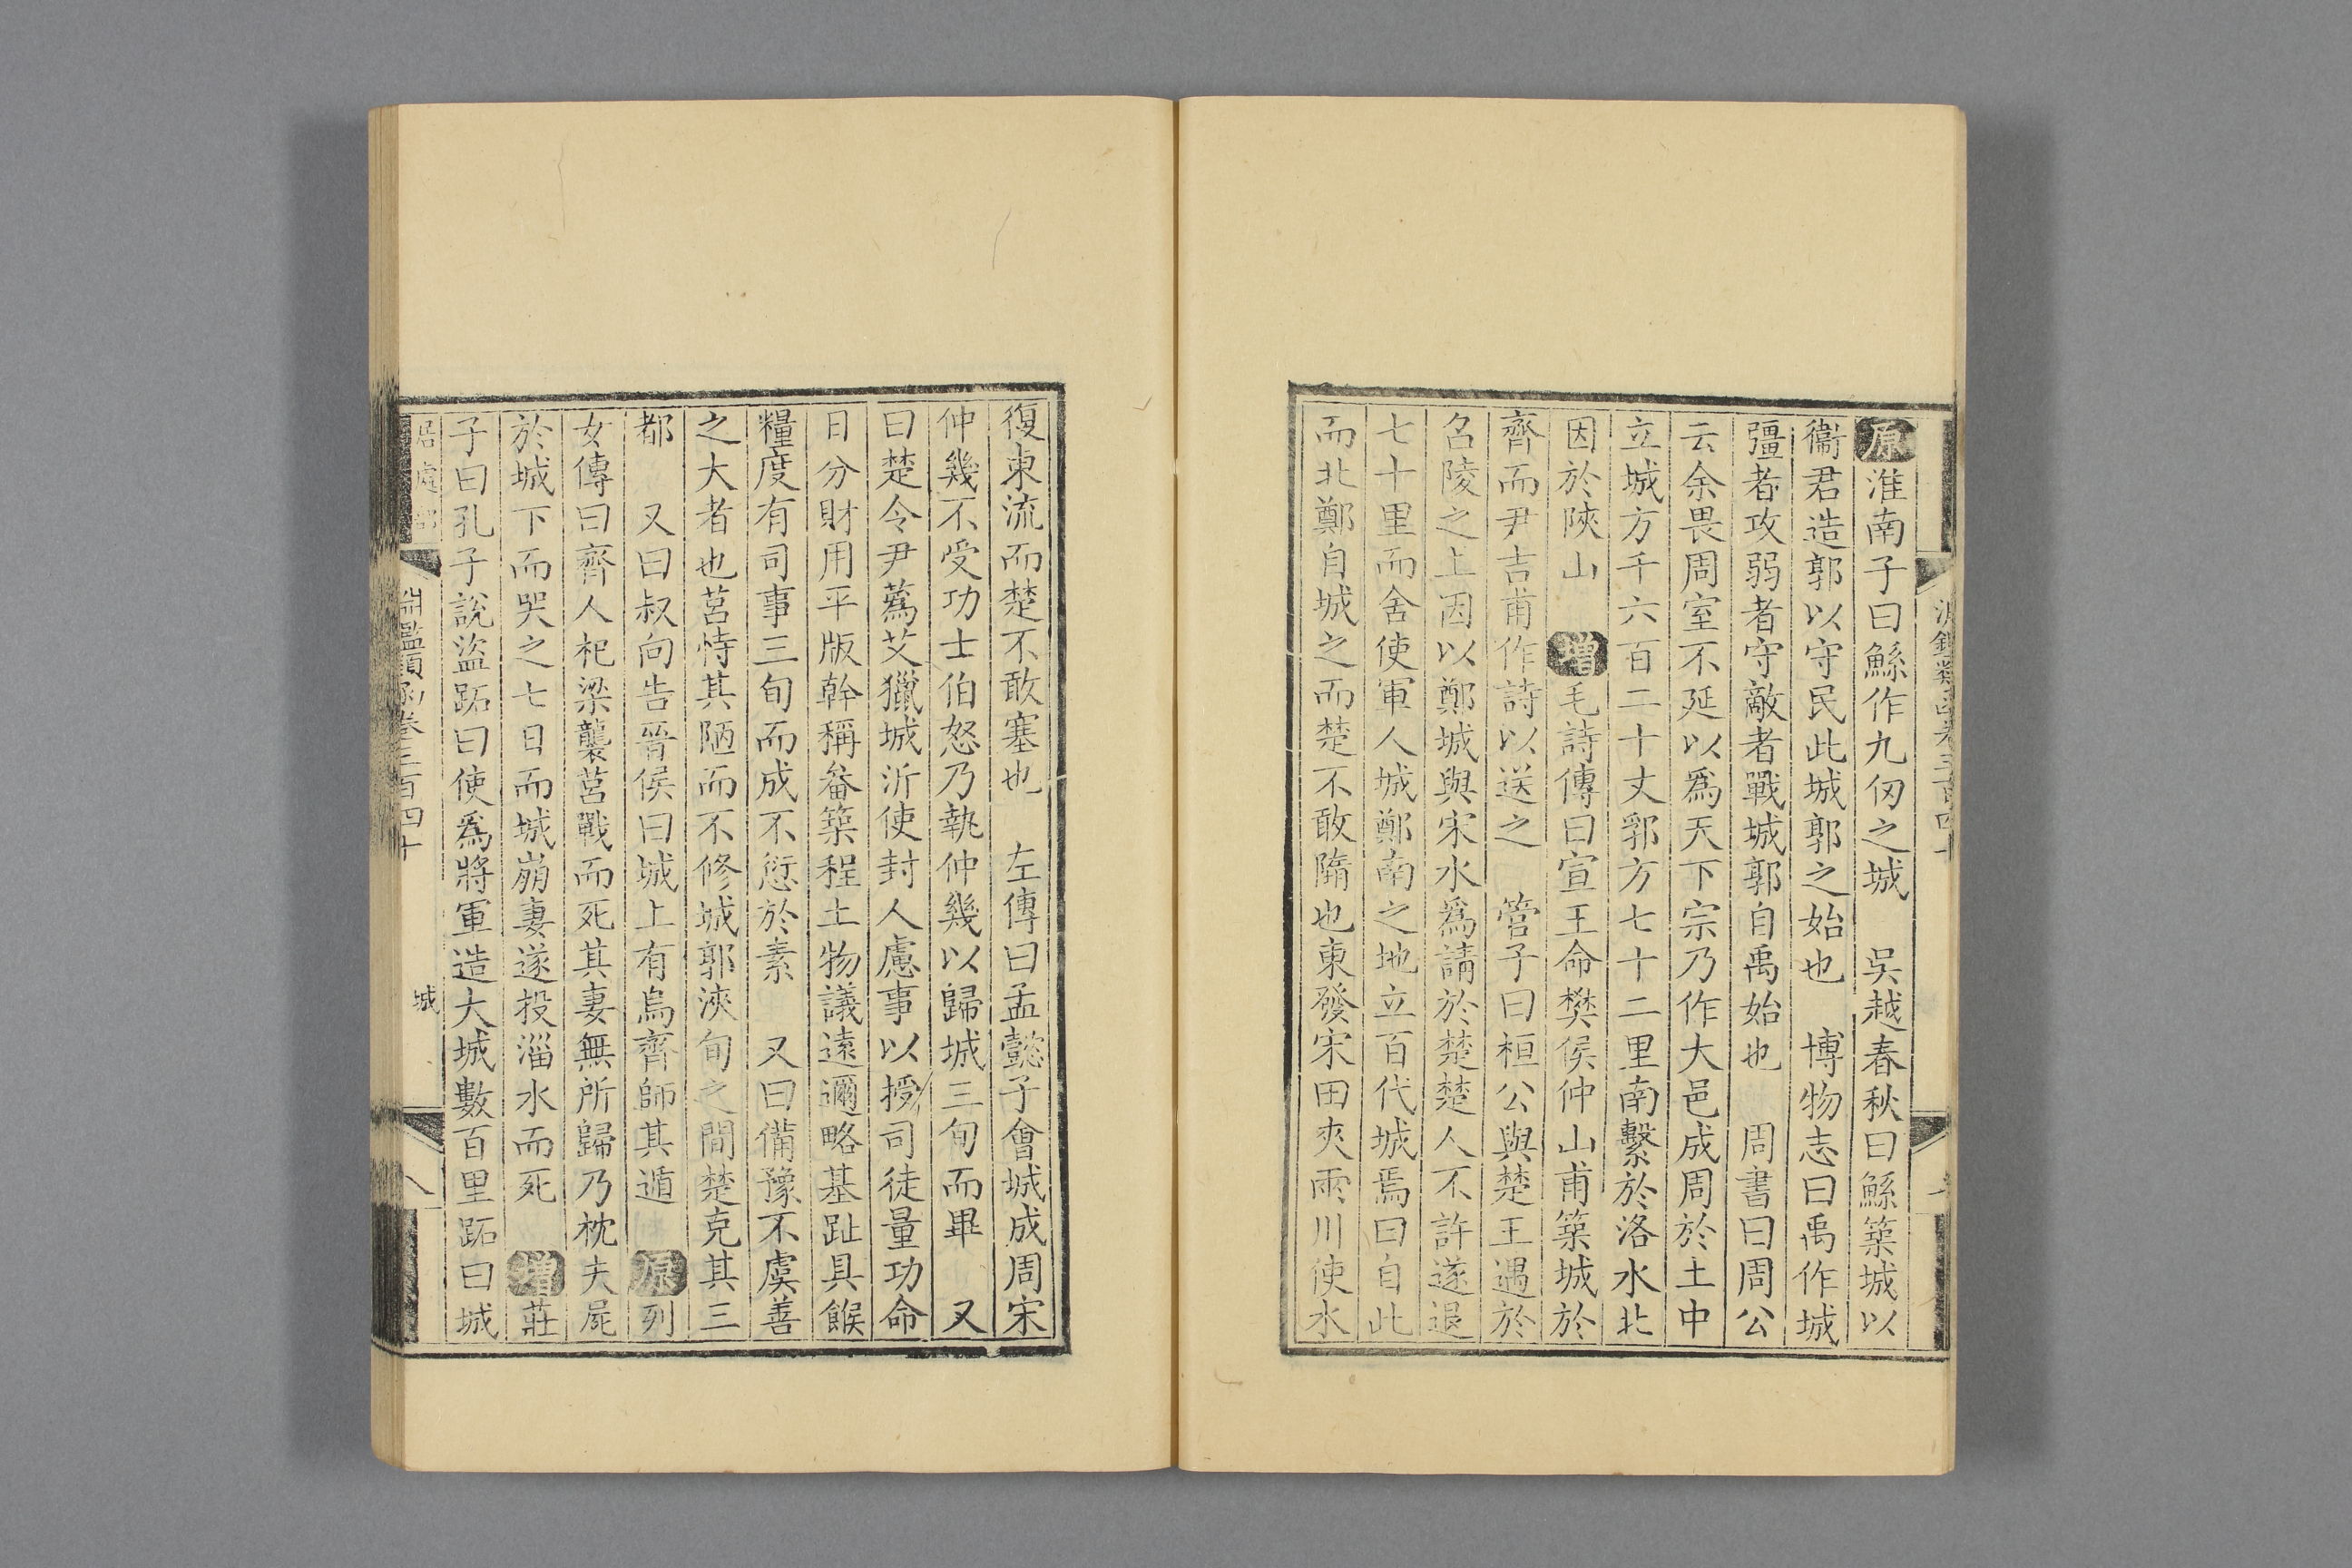 原淮南子曰鯀作九仞之城　吳越春秋曰鯀築城以
衞君造郭以守民此城郭之始也　博物志曰禹作城
彊者攻弱者守敵者戰城郭自禹始也　周書曰周公
云余畏周室不延以爲天下宗乃作大邑成周於土中
立城方千六百二十丈郛方七十二里南繫於洛水北
因於陝山　增毛詩傳曰宣王命樊侯仲山甫築城於
齊而尹吉甫作詩以送之　管子曰桓公與楚王遇於
名陵之上因以鄭城與宋水爲請於楚楚人不許遂退
七十里而舍使軍人城鄭南之地立百代城焉曰自此
而北鄭自城之而楚不敢隳也東發宋田夾兩川使水
復東流而楚不敢塞也　左傳曰孟懿子會城成周宋
仲幾不受功士伯怒乃執仲幾以歸城三旬而畢　又
曰楚令尹蔿艾獵城沂使封人慮事以授司徒量功命
日分財用平版幹稱畚築程土物議遠邇略基趾具餱
糧度有司事三旬而成不愆於素　又曰備豫不虞善
之大者也莒恃其陋而不修城郭浹旬之間楚克其三
都　又曰叔向告晉侯曰城上有烏齊師其遁　原列
女傳曰齊人杞梁襲莒戰而死其妻無所歸乃枕夫屍
於城下而哭之七日而城崩妻遂投淄水而死　增莊
子曰孔子說盜跖曰使爲將軍造大城數百里跖曰城
居處部　淵鑑類函卷三百四十　城　八